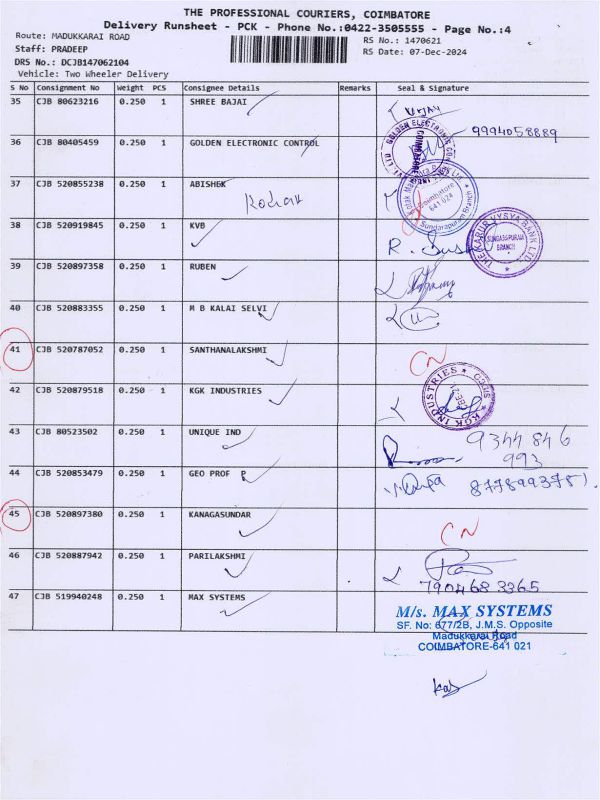 THE PROFESSIONAL COURIERS, COIMBATORE
Delivery Runsheet - PCK - Phone No.:0422-3505555 - Page No.:4
Route: MADUKKARAI ROAD
RS No.: 1470621
Staff: PRADEEP
RS Date: 07-Dec-2024
DRS No.: DCJB147062104
Vehicle: Two Wheeler Delivery
S No Consignment No Weight PCS Consignee Details Remarks Seal & Signature
35 CJB 80623216 0.250 1 SHREE BAJAI
9994058889
36 CJB 80405459 0.250 1 GOLDEN ELECTRONIC CONTROL
GOLDEN ELECTRONIC
COIMBATORE
37 CJB 520855238 0.250 1 ABISHEK
Coimbatore
641 024
Sundarapuram Branch
38 CJB 520919845 0.250 1 KVB
THE KARUR VYSYA BANK LTD.
SUNDARAPURAM
BRANCH
39 CJB 520897358 0.250 1 RUBEN
40 CJB 520883355 0.250 1 M B KALAI SELVI
41 CJB 520787052 0.250 1 SANTHANALAKSHMI
CN
42 CJB 520879518 0.250 1 KGK INDUSTRIES
KGK INDUSTRIES
43 CJB 80523502 0.250 1 UNIQUE IND
9344 846
993
44 CJB 520853479 0.250 1 GEO PROF P
45 CJB 520897380 0.250 1 KANAGASUNDAR
CN
46 CJB 520887942 0.250 1 PARILAKSHMI
7904683365
47 CJB 519940248 0.250 1 MAX SYSTEMS
M/s. MAX SYSTEMS
SF. No: 677/2B, J.M.S. Opposite
Madukkarai Road
COIMBATORE-641 021